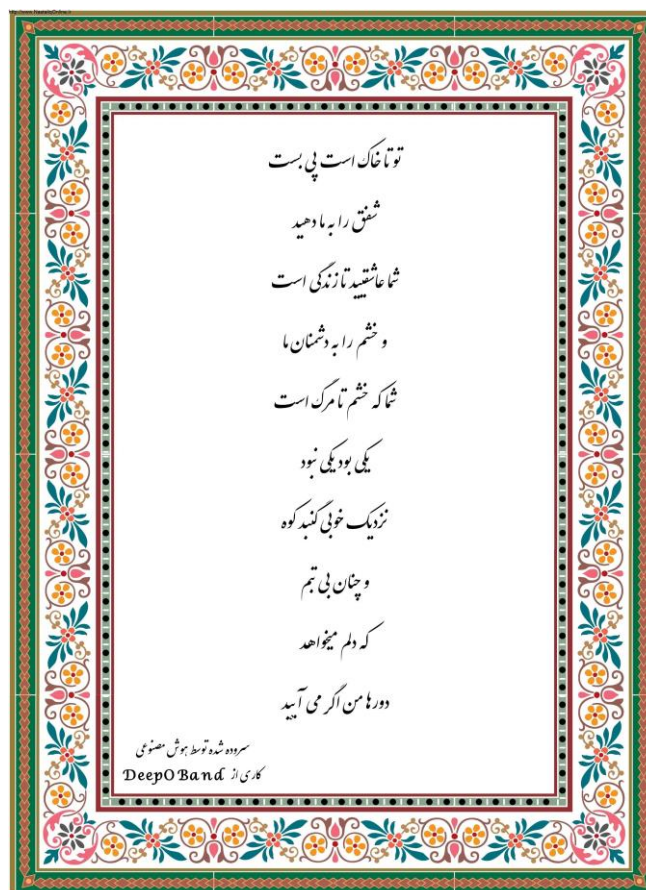 تو تا خاک است پی بست
شفق را به ما دهید
شما عاشقیید تا زندگی است
و خشم را به دشمنان ما
شما که خشم تا مرگ است
یکی بود یکی نبود
نزدیک خوبی گنبد کوه
و چنان بی تبم
که دلم میخواهد
دورها من اگر می آیید
سروده شده توسط هوش مصنوعی
کاری از DeepOBand